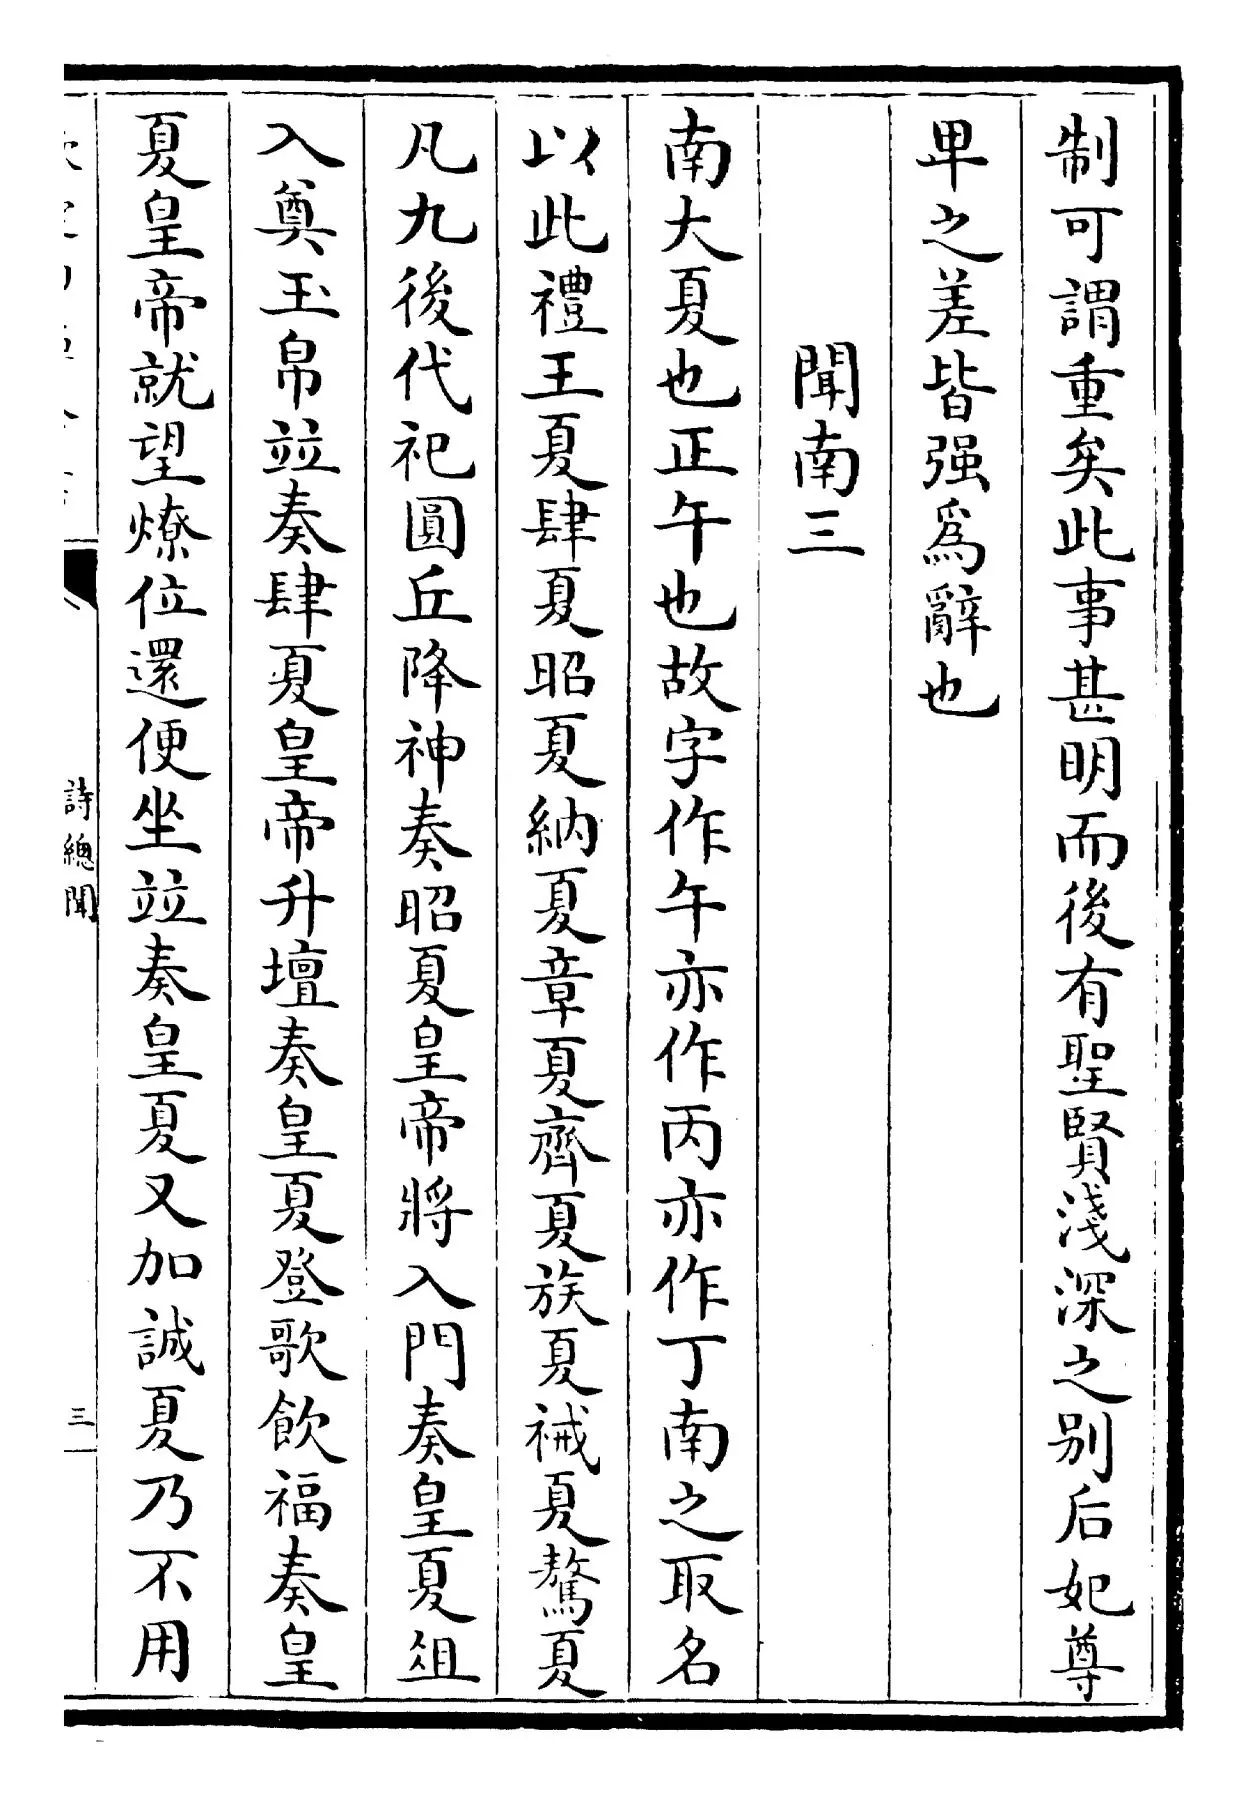 制可謂重矣此事甚明而後有聖賢淺深之别后妃尊
卑之差皆强為辭也
聞南三
南大夏也正午也故字作午亦作丙亦作丁南之取名
以此禮王夏肆夏昭夏納夏章夏齊夏族夏祴夏驁夏
凡九後代祀圓丘降神奏昭夏皇帝將入門奏皇夏俎
入奠玉帛竝奏肆夏皇帝升壇奏皇夏登歌飲福奏皇
夏皇帝就望燎位還便坐竝奏皇夏又加誠夏乃不用
詩總聞
三